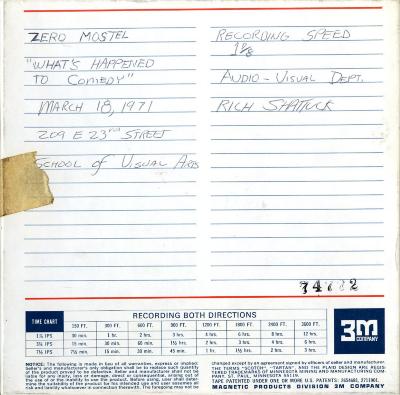 ZERO MOSTEL
"WHAT'S HAPPENED
TO COMEDY"
MARCH 18, 1971
209 E 23rd STREET
SCHOOL of VISUAL ARTS
RECORDING SPEED
1 7/8
AUDIO-VISUAL DEPT.
RICH SHATUCK
74722
RECORDING BOTH DIRECTIONS
TIME CHART 150 FT. 300 FT. 600 FT. 900 FT. 1200 FT. 1800 FT. 2400 FT. 3600 FT.
1⅞ IPS 30 min. 1 hr. 2 hrs. 3 hrs. 4 hrs. 6 hrs. 8 hrs. 12 hrs.
3¾ IPS 15 min. 30 min. 60 min. 1½ hrs. 2 hrs. 3 hrs. 4 hrs. 6 hrs.
7½ IPS 7½ min. 15 min. 30 min. 45 min. 1 hr. 1½ hrs. 2 hrs. 3 hrs.
3M
COMPANY
NOTICE: The following is made in lieu of all warranties, express or implied:
Seller's and manufacturer's only obligation shall be to replace such quantity
of the product proved to be defective. Neither seller nor manufacturer shall be
liable for any injury, loss or damage, direct or consequential, arising out of
the use of or the inability to use the product. Before using, user shall determine
the suitability of the product for his intended use and user assumes all
risk and liability whatsoever in connection therewith. The foregoing may not be
changed except by an agreement signed by officers of seller and manufacturer.
THE TERMS "SCOTCH" "TARTAN" AND THE PLAID DESIGN ARE REGISTERED
TRADEMARKS OF MINNESOTA MINING AND MANUFACTURING COMPANY,
ST. PAUL, MINNESOTA 55119.
TAPE PATENTED UNDER ONE OR MORE U.S. PATENTS: 2654681, 2711901.
MAGNETIC PRODUCTS DIVISION 3M COMPANY